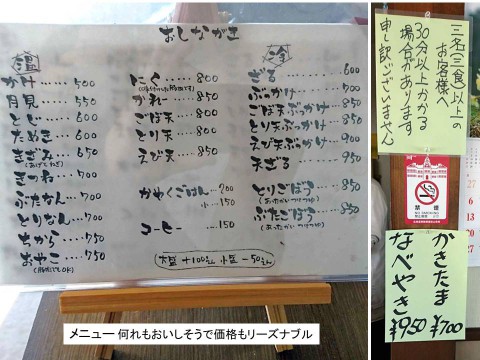 おしながき
温
かけ……500
月見……550
とじ……600
たぬき……600
きざみ……650
(あげてたぎ)
きつね……700
ぶたなん……750
とりなん……750
ちから……750
おやこ……750
にく……800
カレー……850
ごぼ天……850
とり天……850
えび天……850
かやくごはん…200
小…150
コーヒー…150
冷
ざる……600
ぶっかけ……700
ごぼ天ぶっかけ…850
とり天ぶっかけ…850
えび天ぶっかけ…900
天ざる……950
とりごぼう……850
(あったかいつけつゆ)
ぶたごぼう……850
(あったかいつけつゆ)
大盛+100えん 小盛-50えん
メニュー 何れもおいしそうで価格もリーズナブル
三名(三食)以上の
お客様へ
30分以上かかる
場合があります
申し訳ございません
禁煙
NO SMOKING
かきたま
¥700
なべやき
¥950
27
6
13
20